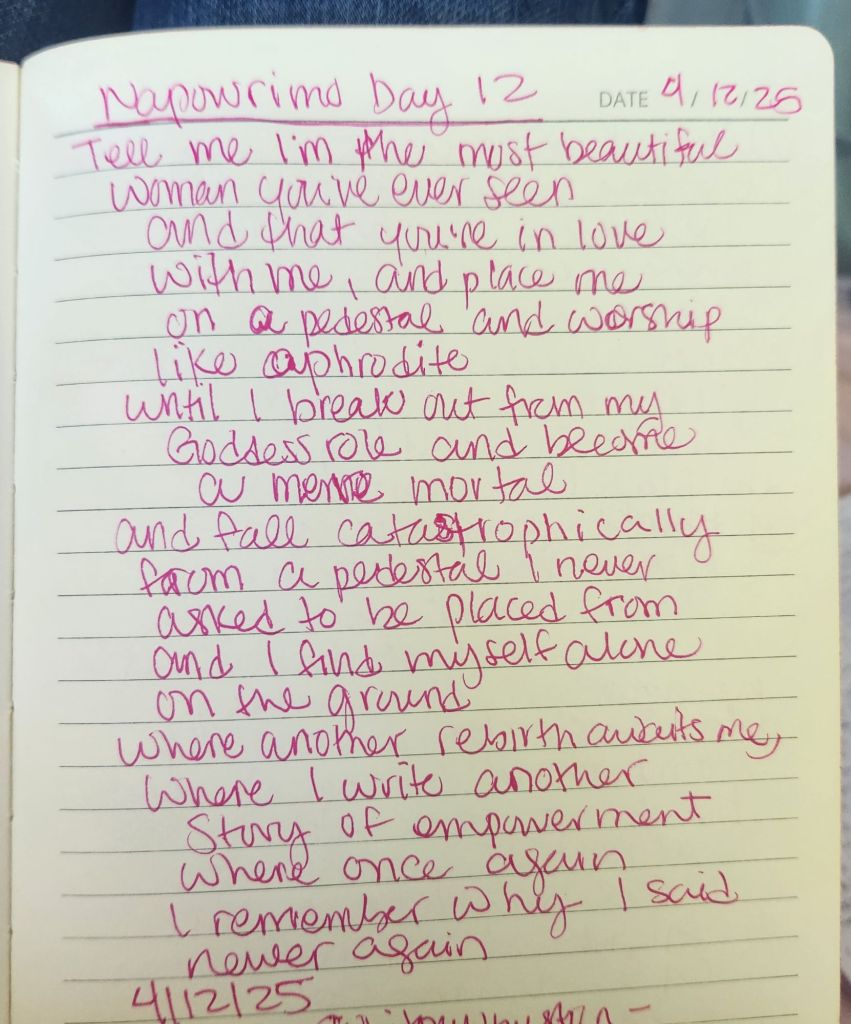 Napowrimo Day 12
DATE 4/12/25
Tell me I'm the most beautiful
woman you've ever seen
and that you're in love
with me, and place me
on a pedestal and worship
like aphrodite
until I break out from my
Goddess role and become
a mere mortal
and fall catastrophically
from a pedestal I never
asked to be placed from
and I find myself alone
on the ground
where another rebirth awaits me,
Where I write another
Story of empowerment
Where once again
I remember why I said
never again
4/12/25